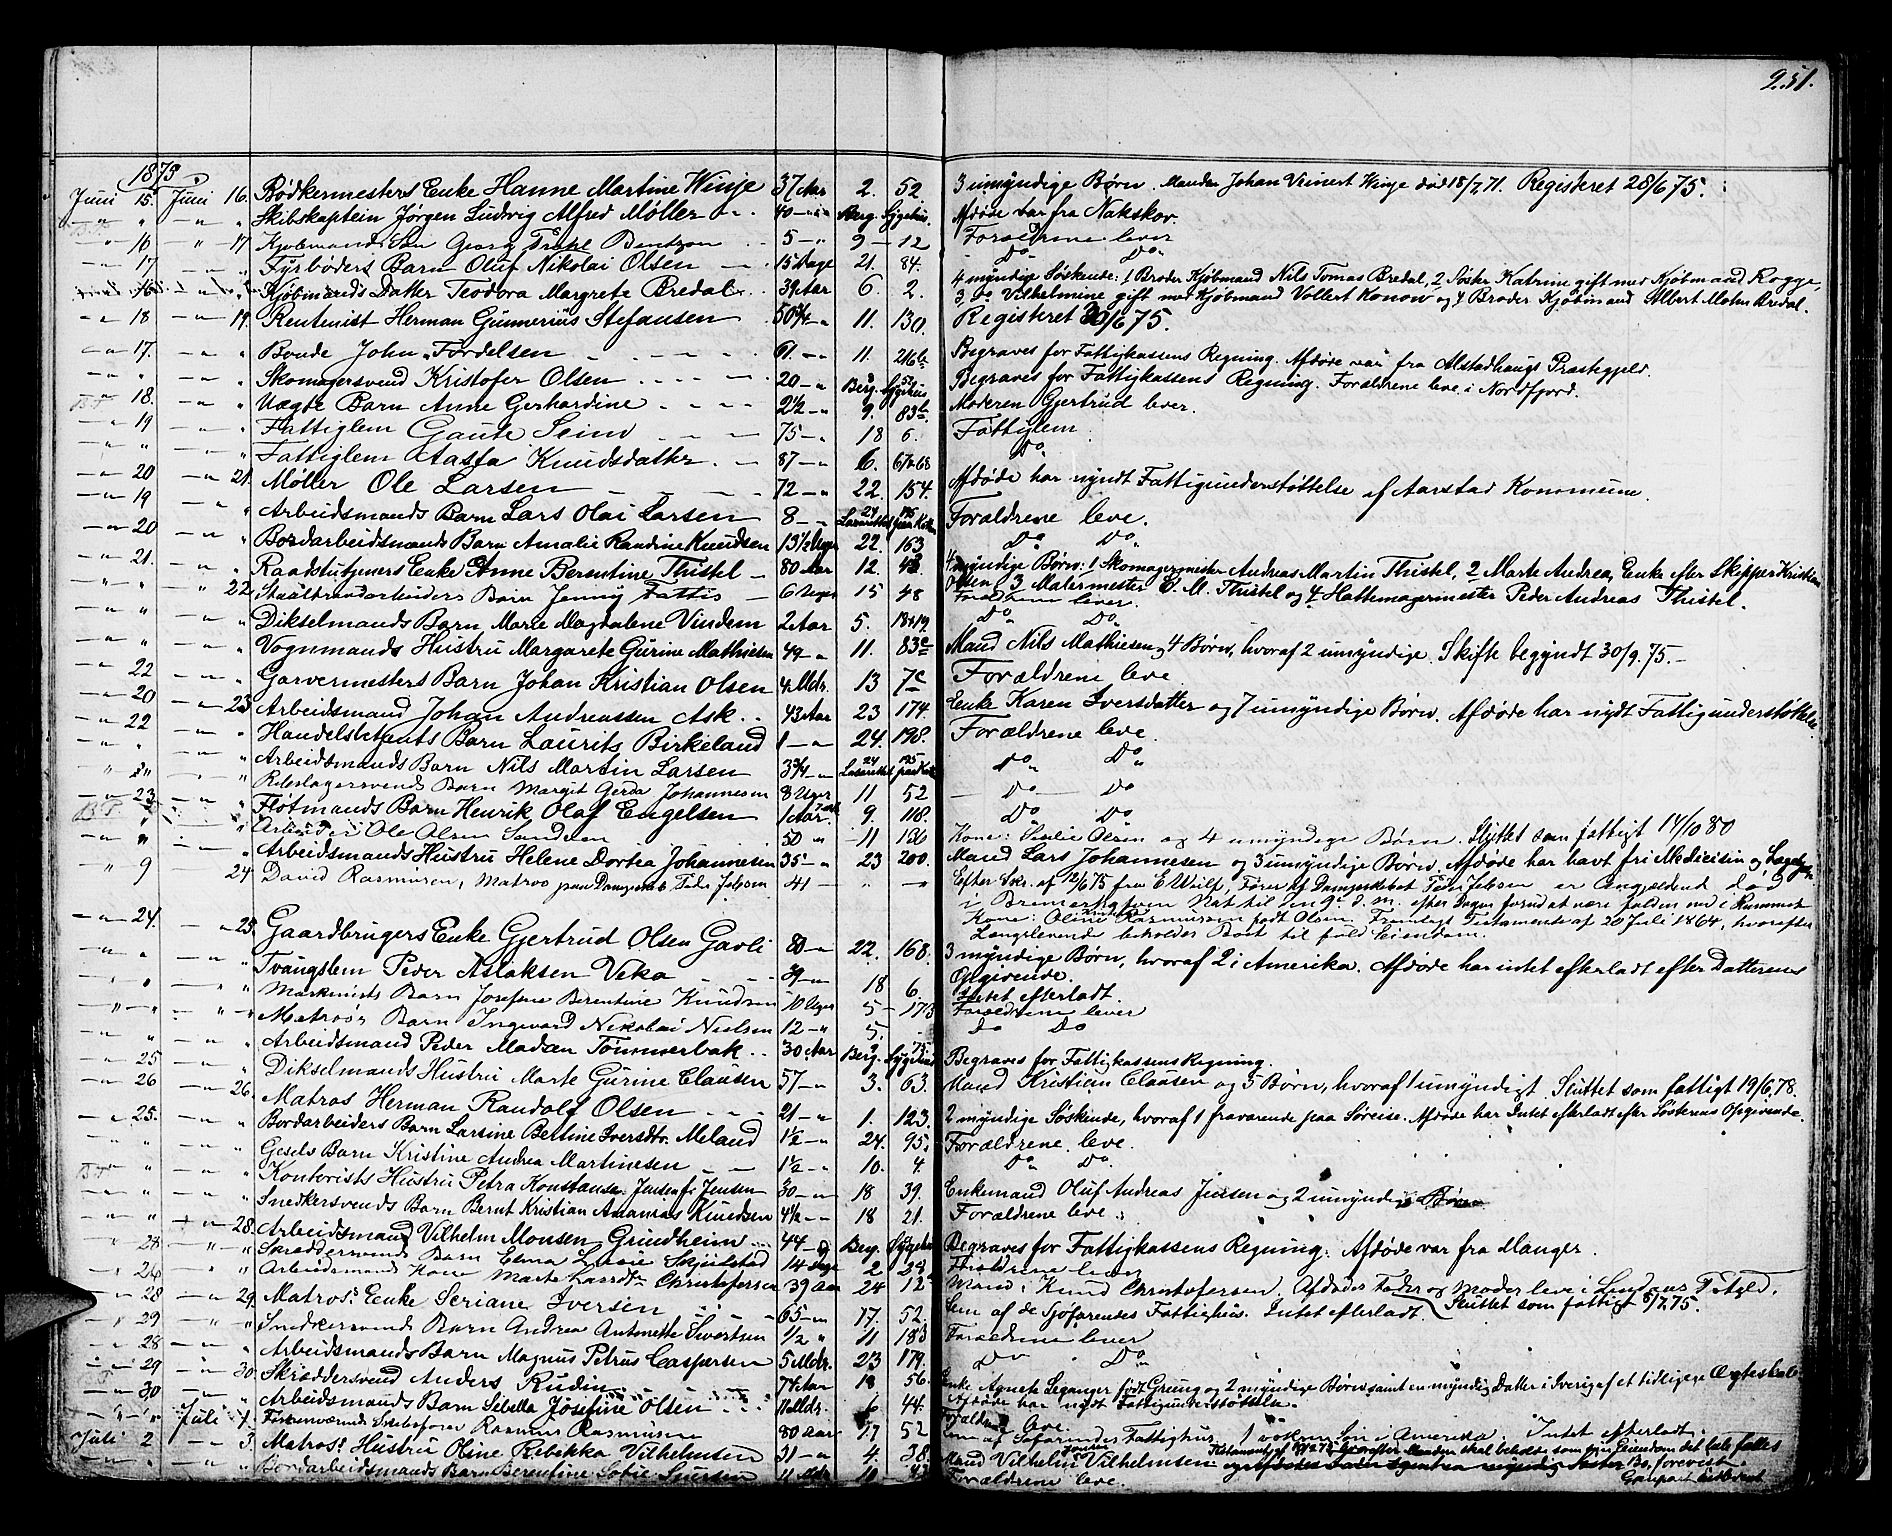 251.
1875
Juni 15. Juni 16. Bødkermesters Enke Hanne Martine Winje 37 Aar 2. 52. 3 umyndige Børn. Manden Johan Winje død 18/7 71. Registeret 28/6 75.
" " Skibskaptein Jörgen Ludvig Alfred Møller 40 Berg. Sygehus. Afdøde var fra Nakskov.
16 17 Kjøbmands Søn Georg Bentzon 5 9 12 Forældrene lever
17 " Fyrbøders Barn Oluf Nikolai Olsen 15 Dage 21. 84. Do Do
16 " Kjøbmands Datter Teodora Margrete Bredal 39 Aar 6. 2. 4 myndige Søskende: 1 Broder Kjøbmand Nils Tomas Bredal, 2 Søster Katrine gift med Kjøbmand Rogge,
3 do Vilhelmine gift med Kjøbmand Vollert Konow og 4 Broder Kjøbmand Albert Bredal.
18 19. Rentenist Herman Gunnerius Stefansen 50 11. 130. Registeret 30/6 75.
17. " Bonde John Fordelsen 61. 11. 216b Begraves for Fattigkassens Regning. Afdøde var fra Alstadhaugs Præstegjeld.
" " Skomagersvend Kristofer Olsen 20 Berg. Sygehus Begraves for Fattigkassens Regning. Forældrene leve i Nordfjord.
18. " Uægte Barn Anne Gerhardine 2 1/2 9. 83b Moderen Gjertrud lever.
19 " Fattiglem Gaute Seim 75 18 6. Fattiglem
" " Fattiglem Aasta Knudsdatter 87 6. 67 68 Do
20 21. Møller Ole Larsen 72 22. 154. Afdøde har nyndt Fattigunderstøttelse af Aarstad Kommune.
19 " Arbeidsmands Barn Lars Olai Larsen 8 24 195 Forældrene leve.
20 " Bordarbeidsmands Barn Amalie Randine Knudsen 13 1/2 Uger 22. 163 Do Do
21. " Raadstutjeners Enke Anne Berentine Thistel 80 Aar 12 4 myndige Børn: 1 Skomagermester Andreas Martin Thistel, 2 Marte Andrea, Enke efter Skipper Kristian
Olsen, 3 Malermester P. M. Thistel og 4 Hattemagermester Peder Andreas Thistel.
" 22. Barn Jenny Fattis 6 Uger 15 48 Forældrene lever.
" " Dikselmands Barn Marie Magdalene Vindem 2 Aar 5. Do Do
" " Vognmands Hustru Margarete Gurine Mathiesen 49 11. 83c Mand Nils Mathiesen, 4 Børn, hvoraf 2 umyndige. Skifte begyndt 30/9. 75.
22 " Garvermesters Barn Johan Kristian Olsen 4 Mdr. 13 7c Forældrene leve
20 23. Arbeidsmand Johan Andreassen Ask 43 Aar 23 174. Enke Karen Iversdatter og 7 umyndige Børn. Afdøde har nydt Fattigunderstøttelse.
22 " Handelsbetjents Barn Laurits Birkeland 1 24. 198. Forældrene leve.
" " Arbeidsmands Barn Nils Martin Larsen 3 3/4 24 195 Do Do
" " Barn Margit Gerda Johannesen 8 Uger 11 52 Do Do
23 " Fløtmands Barn Henrik Olaf Engelsen 1 Aar 9. 118. Do Do
" " Arbeider Ole Olsen Sandven 50 11 Kone: Olsen og 4 umyndige Børn. Sluttet som fattigt 14/10 80
" " Arbeidsmands Hustru Helene Dortea Johannesen 35 23 200. Mand Lars Johannesen og 3 umyndige Børn. Afdøde har havt fri Medicin og Lægehjælp
9 24. David Rasmusen, Matros paa Dampskib Peder Jebsen 41 Efter Skr. af 12/6 75 fra E Wulf, Fører af Dampskibet Peder Jebsen er Angjældende død
i Bremerhafven Nat til den 9de d. m. efter Dagen forud at være falden ned i Rummet
Kone: Oline Rasmusen født Olsen. Fremlagt Testamente af 20 Juli 1864, hvorefter
Længstlevende beholder Boet til fuld Eiendom.
24. 25. Gaardbrugers Enke Gjertrud Olsen Gavli 80 22. 168. 3 myndige Børn, hvoraf 2 i Amerika. Afdøde har intet efterladt efter Datterens
Opgivende.
" " Tvangslem Peder Aslaksen Veka 39 18 6 Intet efterladt.
" " Maskinists Barn Josefine Berentine Knudsen 10 Uger 5 Forældrene lever
" " Matros Barn Ingvard Nikolai Nielsen 12 5. Do Do
" " Arbeidsmand Peder Madsen Tömmerbak 30 Aar Berg. Sygehus Begraves for Fattigkassens Regning.
25 " Dikselmands Hustru Marte Gurine Clausen 57 3. 63. Mand Kristian Clausen og 5 Børn, hvoraf 1 umyndigt. Sluttet som fattigt 19/6 78.
26 26. Matros Herman Randolf Olsen 21 1. 123. 2 myndige Søskende, hvoraf 1 fraværende paa Søreise. Afdøde har Intet efterladt efter Søsterens Opgivende.
25. " Bordarbeiders Barn Larsine Bettine Iversdtr. Meland 1 1/2 24. 95. Forældrene leve.
" " Gesels Barn Kristine Andrea Martinesen 1 1/2 10. 4. Do Do
" " Kontorists Hustru Petra Konstanse Jensen f. Jensen 30 18 39. Enkemand Oluf Andreas Jensen og 2 umyndige Børn
" " Snedkersvends Barn Bernt Kristian Ananias Knudsen 4 1/2 18 21. Forældrene leve.
" 28. Arbeidsmand Vilhelm Monsen Grindheim 44 Berg. Sygehus Begraves for Fattigkassens Regning. Afdøde var fra Manger.
28 " Skræddersvends Barn Elina Lovise Skjelstad 14 Dage 2 28 Forældrene lever
26 " Arbeidsmand Kone Marte Larsdtr Christofersen 39 Aar 24 12 Mand: Knud Christofersen. Afdødes Fader og Moder leve i
28 29. Matros Enke Seriane Iversen 65 17. 52. Lem af de Sjøfarendes Fattighus. Intet efterladt. Sluttet som fattigt 5/7. 75.
29 " Snedkersvends Barn Andrea Antonette Sivertsen 1/2 11 183 Forældrene lever
28 " Arbeidsmands Barn Magnus Petrus Caspersen 5 Mdr. 23 179. Do Do
29 30. Skræddersvend Anders Rudin 74 Aar 18 56. Enke Agnete Leganger født Greug og 2 myndige Børn samt en myndig Datter i Sverig af et tidligere Ægteskab.
Afdøde har nydt Fattigunderstøttelse.
30 " Arbeidsmands Barn Sibella Josefine Olsen 11 Mdr. 6 44. Forældrene leve.
Juli 1. Forhenværende Rasmus Rasmusen 80 Aar 17 52 Lem af Søfarendes Fattighus. 1 voksen Søn i Amerika. Intet efterladt.
Juli 2 3. Matros Hustru Oline Rebekka Vilhelmsen 31 4. 38. Mand Vilhelm Vilhelmsen
" " Bordarbeidsmands Barn Berentine Sofie 11 Mdr. 10 Forældrene leve.